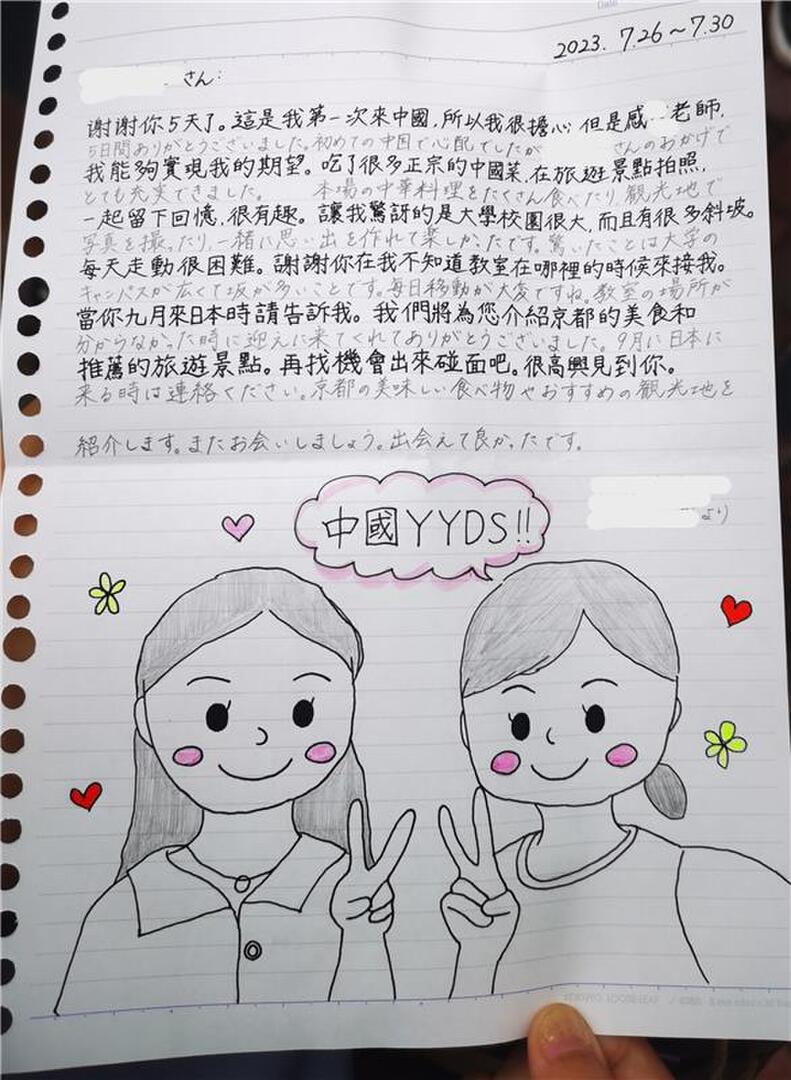 2023. 7.26～7.30
さん:
謝謝你5天了。這是我第一次來中國,所以我很擔心,但是感 老師,
5日間ありがとうございました。初めての中国で心配でしたが さんのおかげで
我能夠實現我的期望。吃了很多正宗的中國菜,在旅遊景點拍照,
とても充実できました。 本場の中華料理をたくさん食べたり、観光地で
一起留下回憶,很有趣。讓我驚訝的是大學校園很大,而且有很多斜坡。
写真を撮ったり、一緒に思い出を作れて楽しかったです。驚いたことは大学の
每天走動很困難。謝謝你在我不知道教室在哪裡的時候來接我。
キャンパスが広くて坂が多いことです。毎日移動が大変ですね。教室の場所が
當你九月來日本時請告訴我。我們將為您介紹京都的美食和
分からなかった時に迎えに来てくれてありがとうございました。9月に日本に
推薦的旅遊景點。再找機會出來碰面吧。很高興見到你。
来る時は連絡ください。京都の美味しい食べ物やおすすめの観光地を
紹介します。またお会いしましょう。出会えて良かったです。
より)
中國YYDS!!